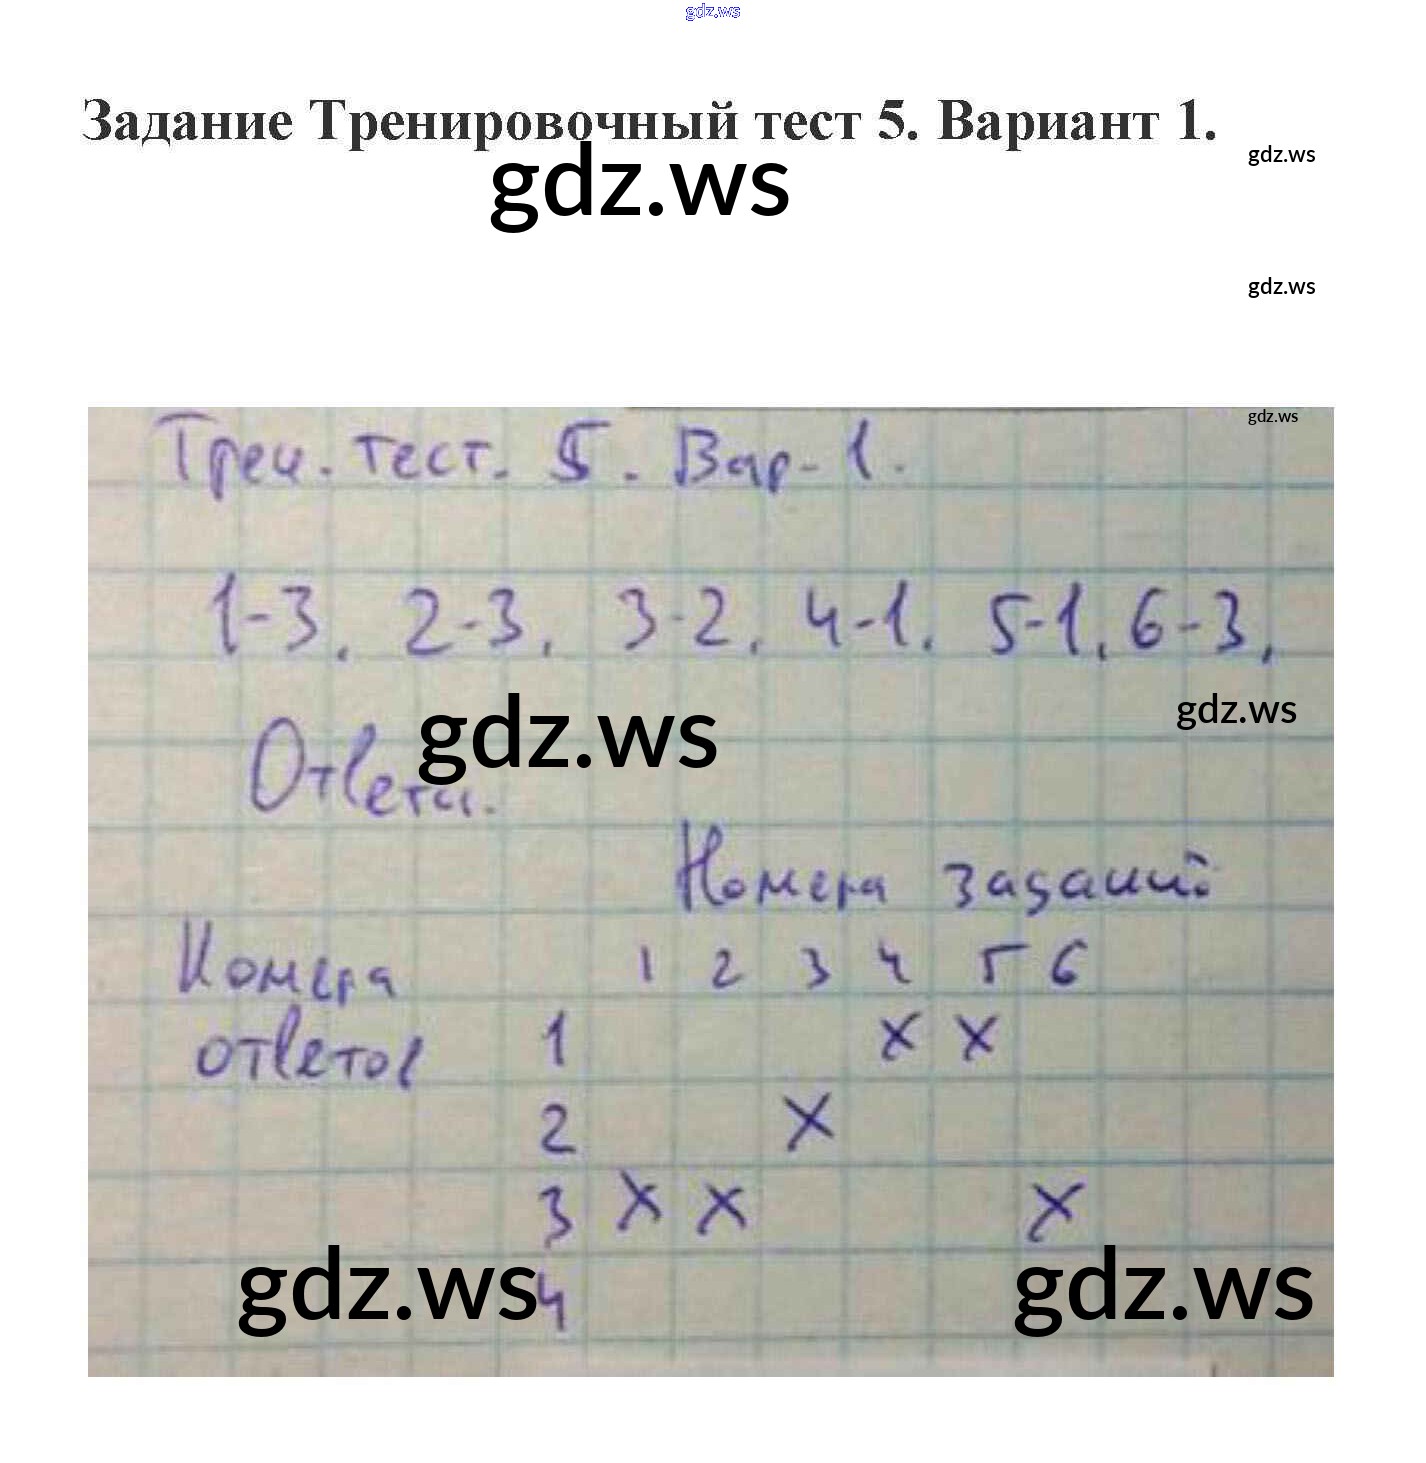 gdz.ws
Задание Тренировочный тест 5. Вариант 1.
gdz.ws
gdz.ws
gdz.ws
gdz.ws
Трен. тест. 5. Вар-1.
1-3, 2-3, 3-2, 4-1, 5-1, 6-3,
gdz.ws
gdz.ws
Ответы.
Номера заданий
Номера 1 2 3 4 5 6
ответов 1 х х
2 х
3 х х х
gdz.ws
gdz.ws
4